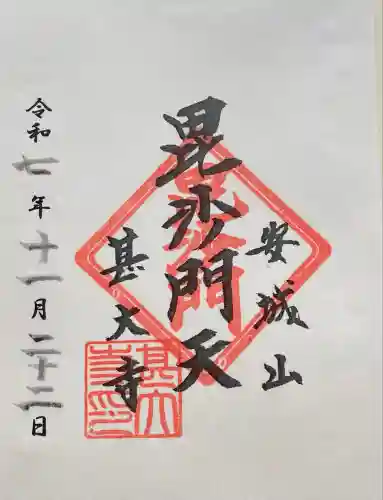 安城山
毘沙門天
甚大寺
甚大寺印
令和七年十一月二十二日